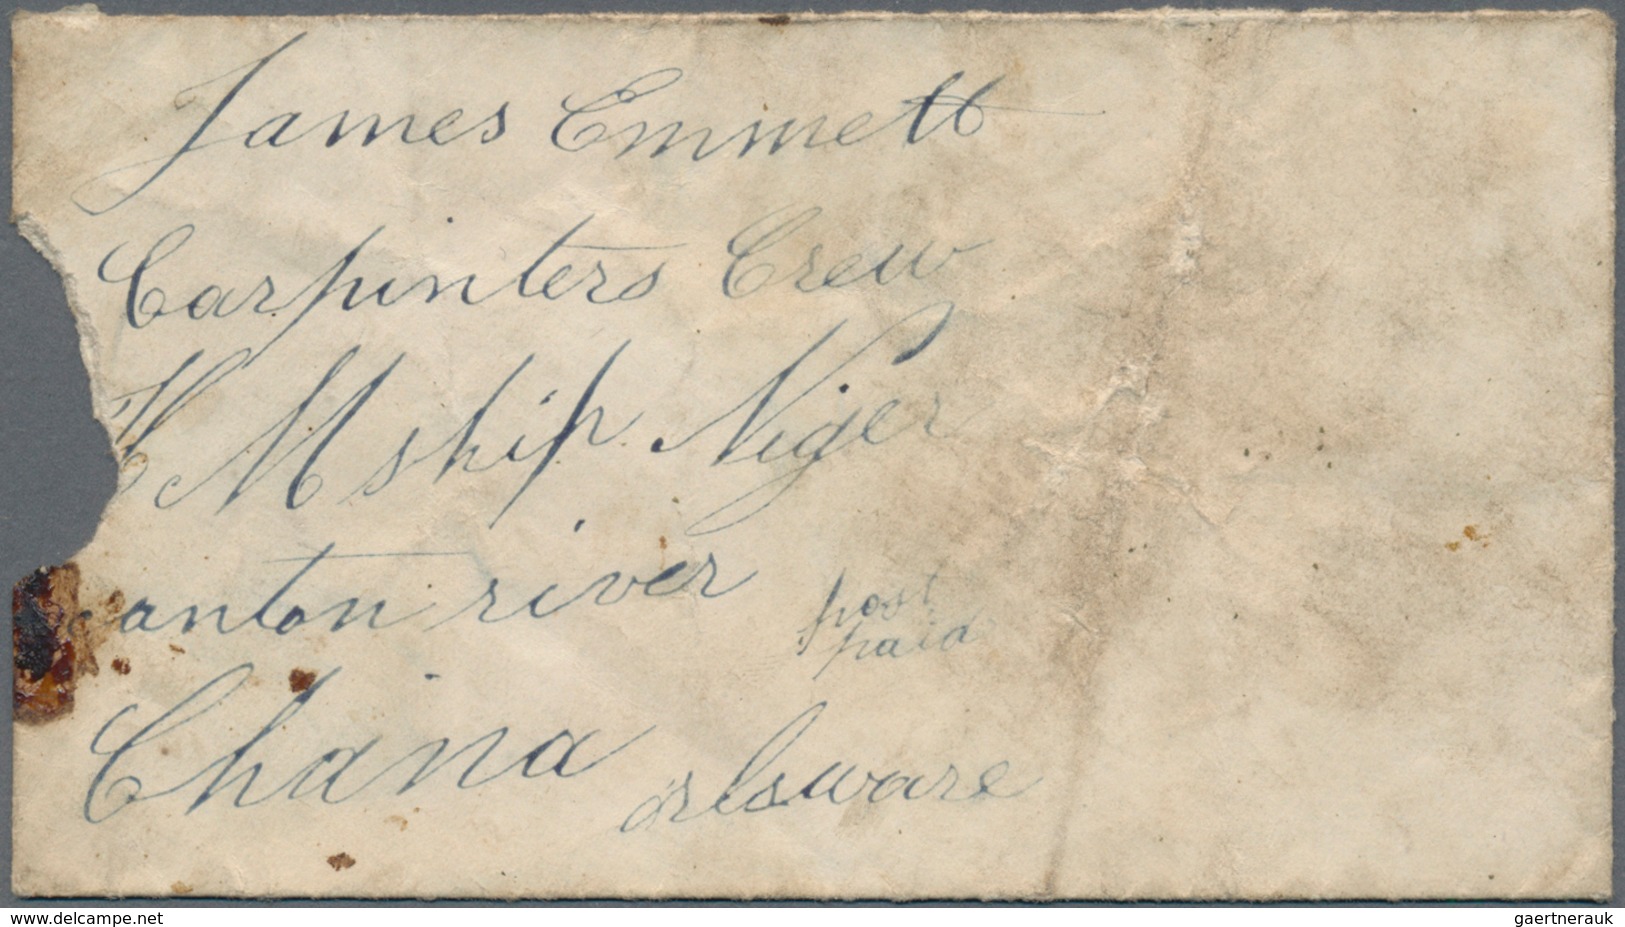 James Emmett
Carpinters Crew
H M ship Niger
anton river
post
paid
China
orlsware
delcampe.net
gaertnerauk